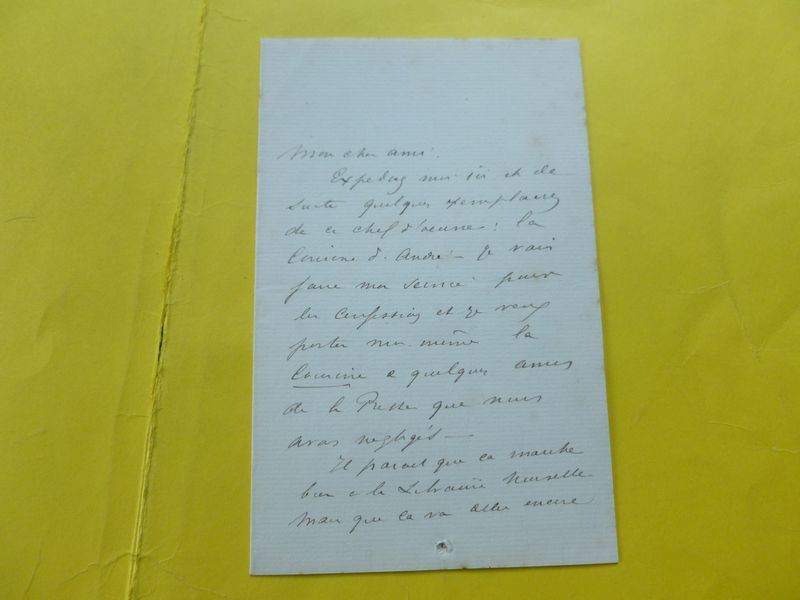 Mon cher ami.
Expediez moi ici et de
suite quelques exemplaires
de ce chef d'oeuvre : la
Cousine d. André - Je vais
faire mon service pour
les Confessions et je veux
porter moi-même la
Cousine a quelques amis
de la Presse que nous
avons negligés —
Il parait que ca marche
bien a la Librairie Nouvelle
mais que ca va aller encore